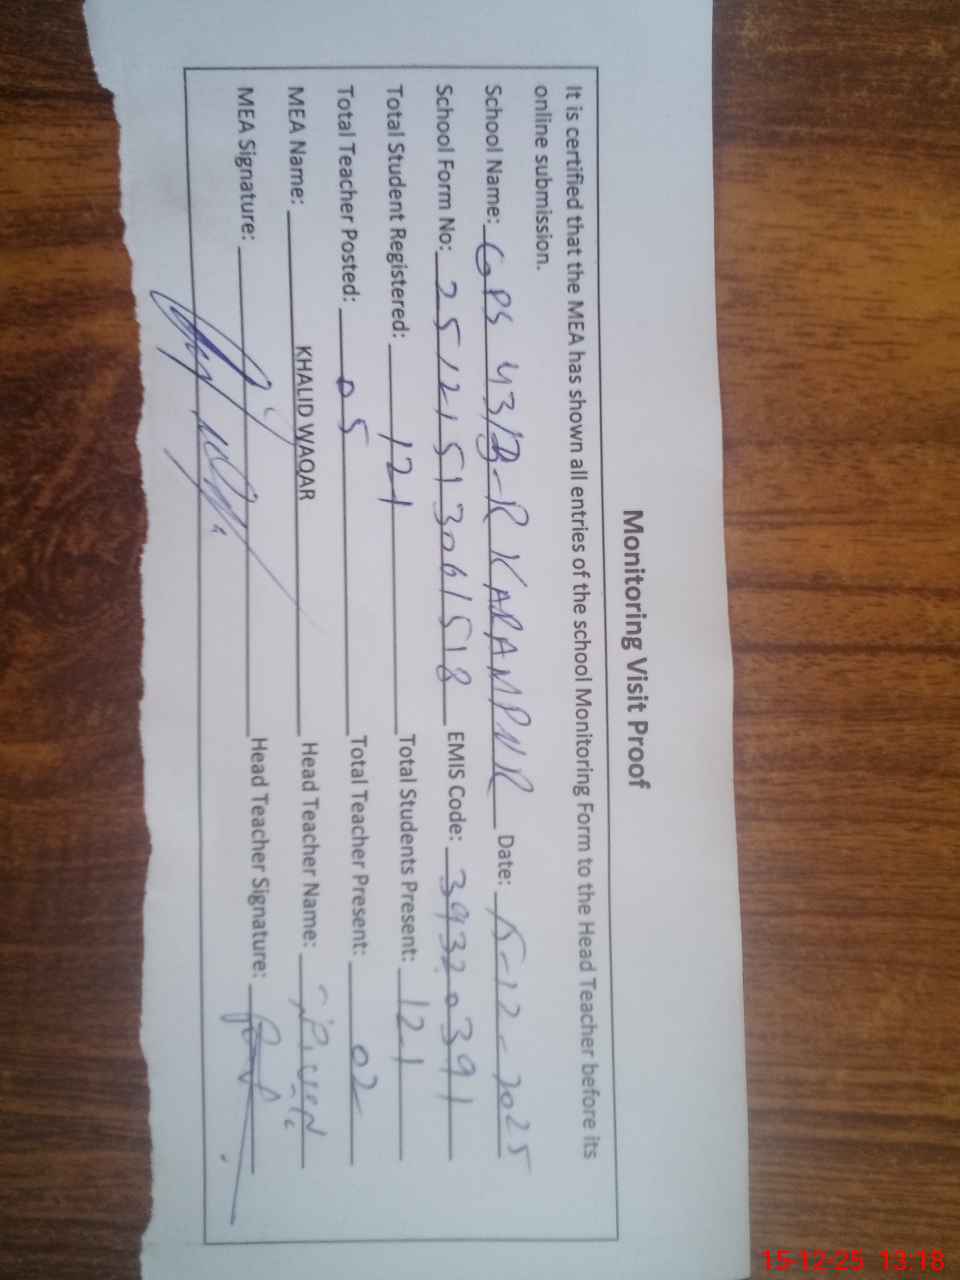 Monitoring Visit Proof
It is certified that the MEA has shown all entries of the school Monitoring Form to the Head Teacher before its
online submission.
School Name: GPS 43/DB-R KARAMPUR Date: 15-12-2025
School Form No: 25121513061518 EMIS Code: 39320391
Total Student Registered: 121 Total Students Present: 121
Total Teacher Posted: 05 Total Teacher Present: 02
MEA Name: KHALID WAQAR Head Teacher Name:
MEA Signature: Head Teacher Signature:
15-12-25 13:18